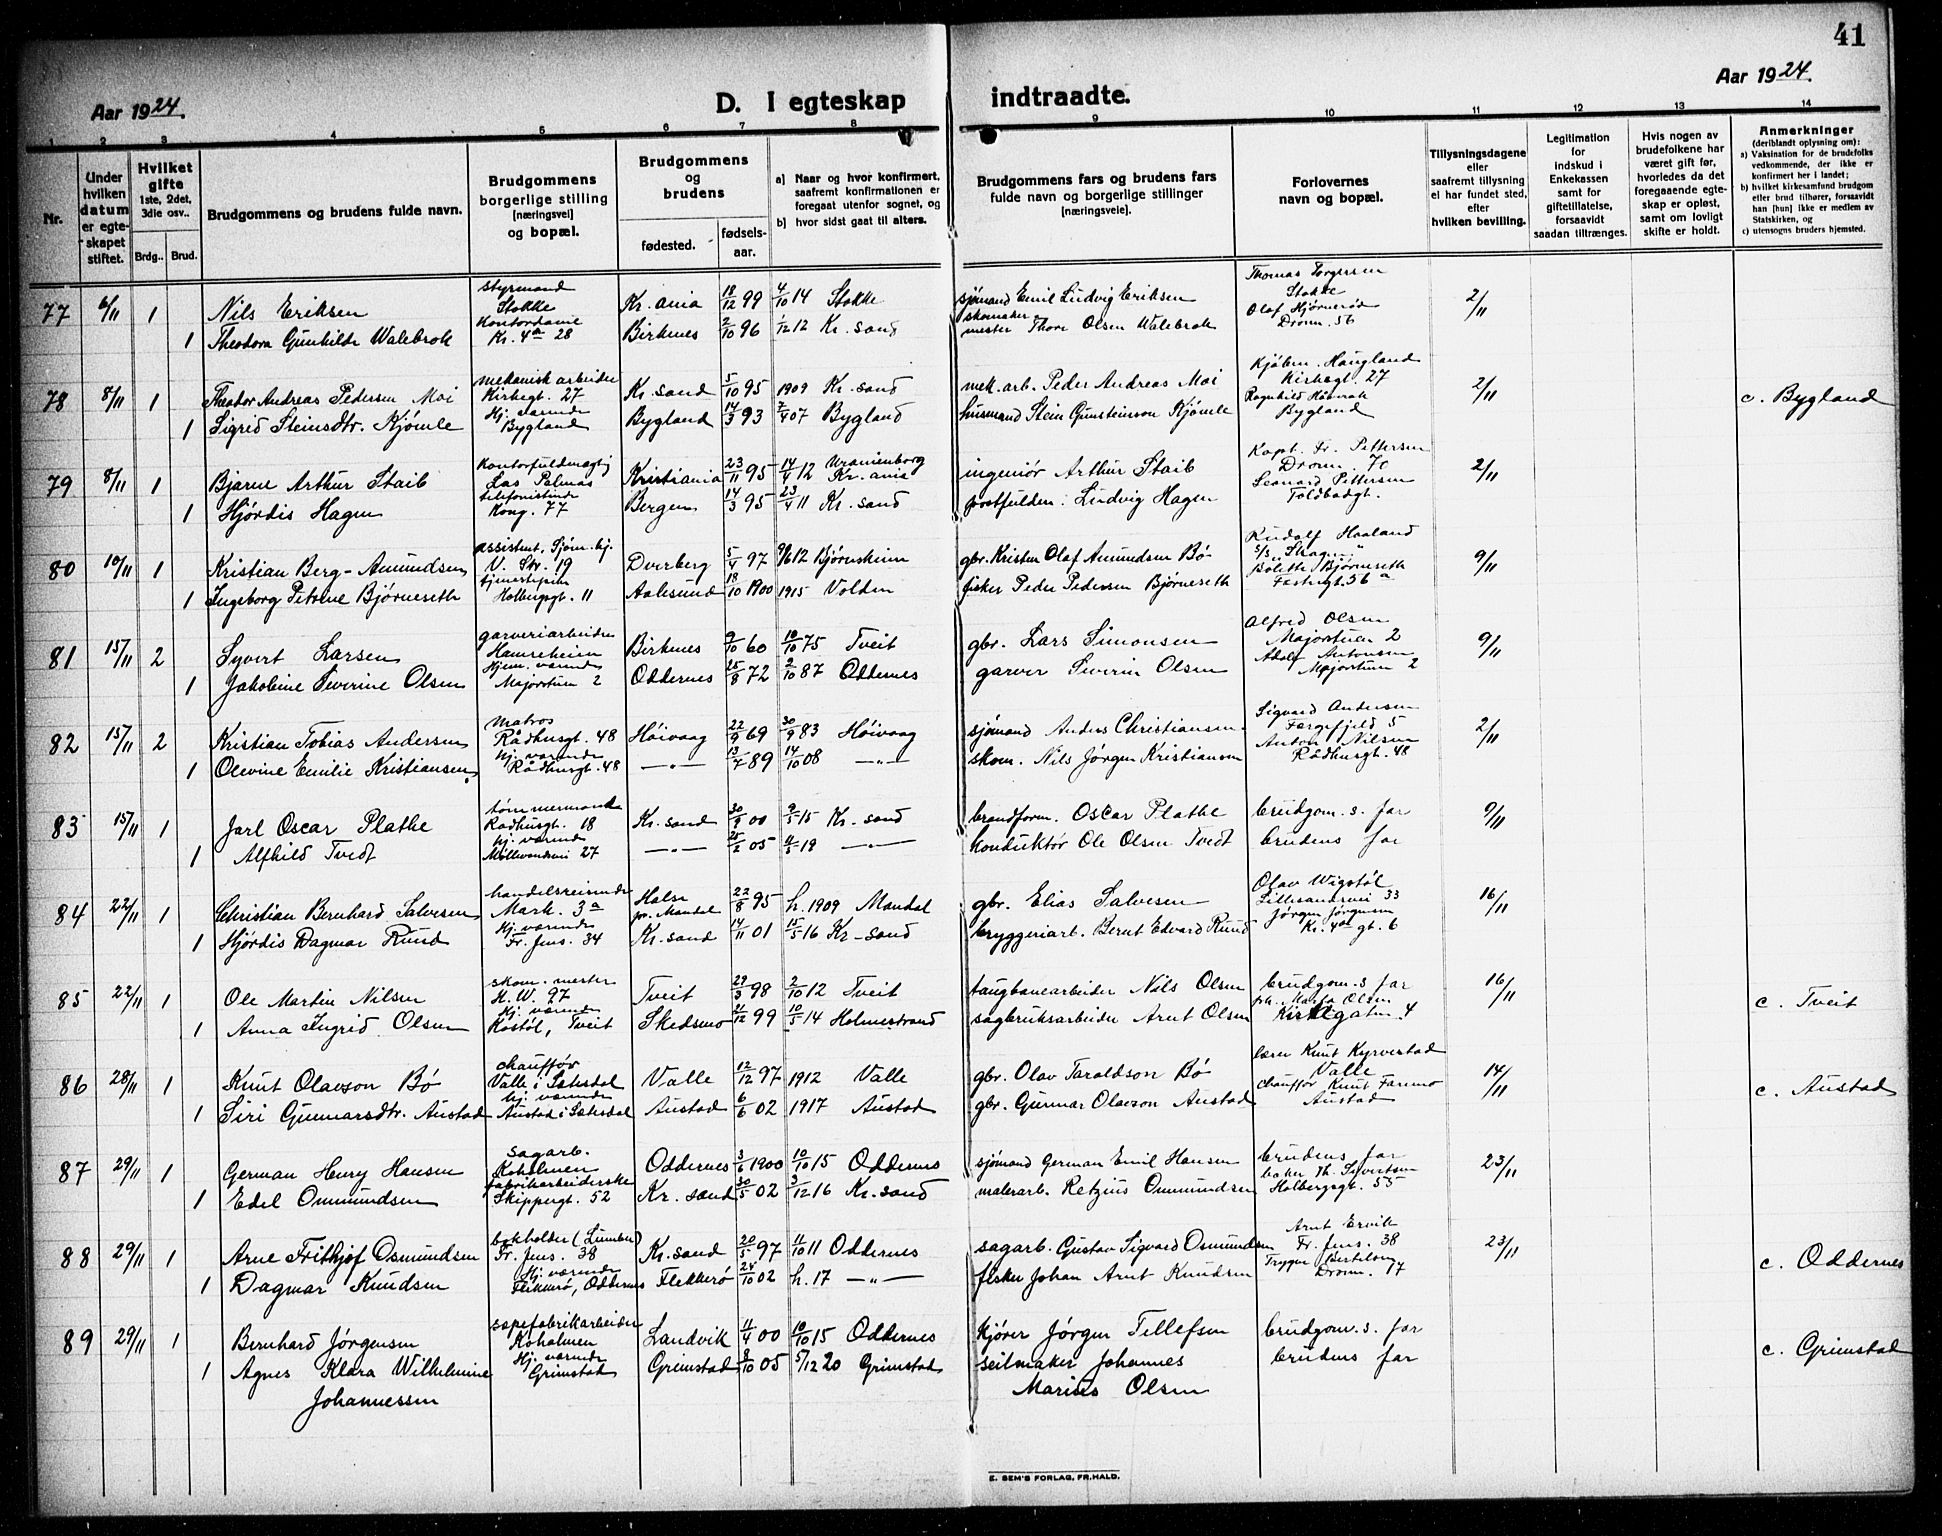 41
Aar 1924.
D. I egteskap
indtraadte.
Aar 1924.
1 2 3 4 5 6 7 8 9 10 11 12 13 14
Nr.
Under hvilken datum er egte-skapet stiftet.
Hvilket gifte 1ste, 2det, 3die osv..
Brdg.. Brud.
Brudgommens og brudens fulde navn.
Brudgommens borgerlige stilling [næringsvei] og bopæl.
Brudgommens og brudens
fødested. fødsels-aar.
a) Naar og hvor konfirmert, saafremt konfirmationen er foregaat utenfor sognet, og
b) hvor sidst gaat til alters.
Brudgommens fars og brudens fars fulde navn og borgerlige stillinger [næringsveie].
Forlovernes navn og bopæl.
Tillysningsdagene eller saafremt tillysning ei har fundet sted, efter hvilken bevilling.
Legitimation for indskud i Enkekassen samt for giftetillatelse, forsaavidt saadan tiltrænges.
Hvis nogen av brudefolkene har været gift før, hvorledes da det foregaaende egte-skap er opløst, samt om lovligt skifte er holdt.
Anmerkninger (deriblandt oplysning om):
a) Vaksination for de brudefolks vedkommende, der ikke er konfirmert her i landet;
b) hvilket kirkesamfund brudgom eller brud tilhører, forsaavidt han [hun] ikke er medlem av Statskirken, og
c) utensogns bruders hjemsted.
77 6/11 1 Nils Eriksen styrmand Stokke Kr.ania 18/12 99 4/10 14 Stokke sjömand Emil Ludvig Eriksen Thomas Torgersen Stokke 2/11
1 Theodora Gunhilde Walebrok Kontordame Kr. 4a 28 Birkenes 2/10 96 1/12 12 Kr.sand skomaker mester Thore Olsen Walebrok Olaf Hjørnerød Dronn. 56
78 8/11 1 Theodor Andreas Pedersen Moi mekanisk arbeider Kirkegt. 27 Kr.sand 5/10 95 1909 Kr.sand mek.arb. Peder Andreas Moi Kjøbm. Haugland Kirkegt. 27 2/11
1 Sigrid Steinsdtr. Kjömle Hj. værende Bygland Bygland 14/3 93 07 Bygland husmand Stein Gunsteinson Kjömle Ragnhild Bygland c. Bygland
79 8/11 1 Bjarne Arthur Staib Kontorfuldmægtig Las Palmas Kristiania 23/11 95 14/4 12 Uranienborg Kr.ania ingeniör Arthur Staib Kapt. Fr. Pettersen Dronn. 70 2/11
1 Hjördis Hagen telefonistinde Kong. 77 Bergen 14/3 95 23/4 11 Kr.sand postfuldm. Ludvig Hagen Leonard Pettersen Toldbodgt.
80 10/11 1 Kristian Berg-Amundsen assistent, Sjöm.hj. V. Str. 19 Dverberg 5/4 97 9/6 12 Bjørnskinn gbr. Kristen Olaf Amundsen Bö Rudolf Haaland 9/11
1 Ingeborg Petrine Björneseth tjenestepike Holbergsgt. 11 Aalesund 18/10 1900 1915 Volden fisker Peder Pedersen Björneseth Bolette Björneseth Festngt. 56a
81 15/11 2 Syvert Larsen garveriarbeider Hamreheien Birkenes 9/10 60 10/10 75 Tveit gbr. Lars Simonsen Alfred Olsen Majorstuen 2 9/11
1 Jakobine Severine Olsen Hjem. værende Majorstuen 2 Oddernes 25/8 72 2/10 87 Oddernes garver Severin Olsen Adolf Antonsen Majorstuen 2
82 15/11 2 Kristian Tobias Andersen Matros Rådhusgt. 48 Höivaag 22/9 69 30/9 83 Höivaag sjömand Anders Christiansen Sigvard Andersen Færgefjeld 5 2/11
1 Olevine Emilie Kristiansen. hj. værende Rådhusgt. 48 —„— 13/7 89 14/10 08 —„— skom. Nils Jörgen Kristiansen Anton Nilsen Rådhusgt. 48
83 15/11 1 Jarl Oscar Plathe tömmermand Raadhusgt. 18 Kr.sand 30/9 00 9/5 15 Kr.sand brandform. Oscar Plathe brudgom.s. far 9/11
1 Alfhild Tvedt hj. værende Möllevandsvei 27 —„— 25/2 05 4/5 19 —„— konduktör Ole Olsen Tvedt brudens far
84 22/11 1 Christian Bernhard Salvesen handelsreisende Mark. 3a Halse pr. Mandal 22/8 95 h. 1909 Mandal gbr. Elias Salvesen Olav Wigstöl Lillesandsvei 33 16/11
1 Hjördis Dagmar Ruud Hj. værende Fr. Jens. 34 Kr.sand 14/11 01 15/5 16 Kr-sand bryggeriarb. Bernt Edvard Ruud Jörgen Jörgensen Kr. 4de gt. 6
85 22/11 1 Ole Martin Nilsen skom.mester K.W. 97 Tveit 29/3 98 2/10 12 Tveit taugbanearbeider Nils Olsen brudgom.s far 16/11
1 Anna Ingrid Olsen Hj. værende Kostöl, Tveit Skedsmo 21/12 99 10/5 14 Holmestrand sagbruksarbeider Arnt Olsen frk. Marta Olsen Kirkegaten 4 c. Tveit
86 28/11 1 Knut Olavson Bö chaufför Valle i Sætesdal Valle 12/12 97 1912 Valle gbr. Olav Taraldson Bö lærer Knut Kyrvestad Valle 14/11
1 Siri Gunnarsdtr. Austad hj. værende Austad i Sætesdal Austad 6/6 02 1917 Austad gbr. Gunnar Olavson Austad chaufför Knut Faremo Austad c. Austad
87 29/11 1 German Henry Hansen sagarb. Koholmen Oddernes 3/6 1900 10/10 15 Oddernes sjömand German Emil Hansen brudens far 23/11
1 Edel Ommundsen fabrikarbeiderske Skippergt. 52 Kr.sand 30/5 02 3/12 16 Kr.sand malerarb. Retzius Ommundsen baker Th. Syvertsen Holbergsgt. 55
88 29/11 1 Arne Frithjof Osmundsen bokholder (Lumber) Fr. Jens. 38 Kr.sand 20/5 97 11/10 11 Oddernes sagarb. Gustav Sigvard Osmundsen Arnt Ervik Fr. Jens. 38 23/11
1 Dagmar Knudsen Hj. værende Flekkerö, Oddernes Flekkerö 24/10 02 h. 17 —„— fisker Johan Arnt Knudsen Trygve Bertelsen Dronn. 17 c. Oddernes
89 29/11 1 Bernhard Jörgensen sæpefabrikarbeider Koholmen Landvik 11/4 00 10/10 15 Oddernes kjörer Jörgen Tellefsen brudgom.s. far
1 Agnes Klara Wilhelmine Johannessen Hj. værende Grimstad Grimstad 8/10 05 5/12 20 Grimstad seilmaker Johannes Marius Olsen brudens far c. Grimstad
E. SEM'S FORLAG, FR.HALD.